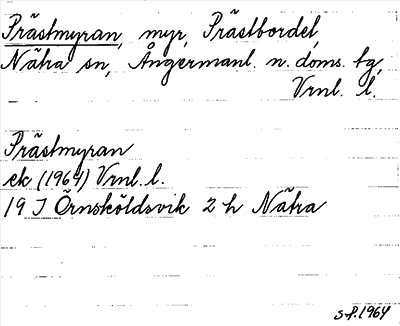 Prästmyran, myr, Prästbordel,
Nätra sn, Ångermanl. n. doms. tg,
Vrnl. l.
Prästmyran
ek (1964) Vrnl. l.
19 J Örnsköldsvik 2 h Nätra
S-P. 1964